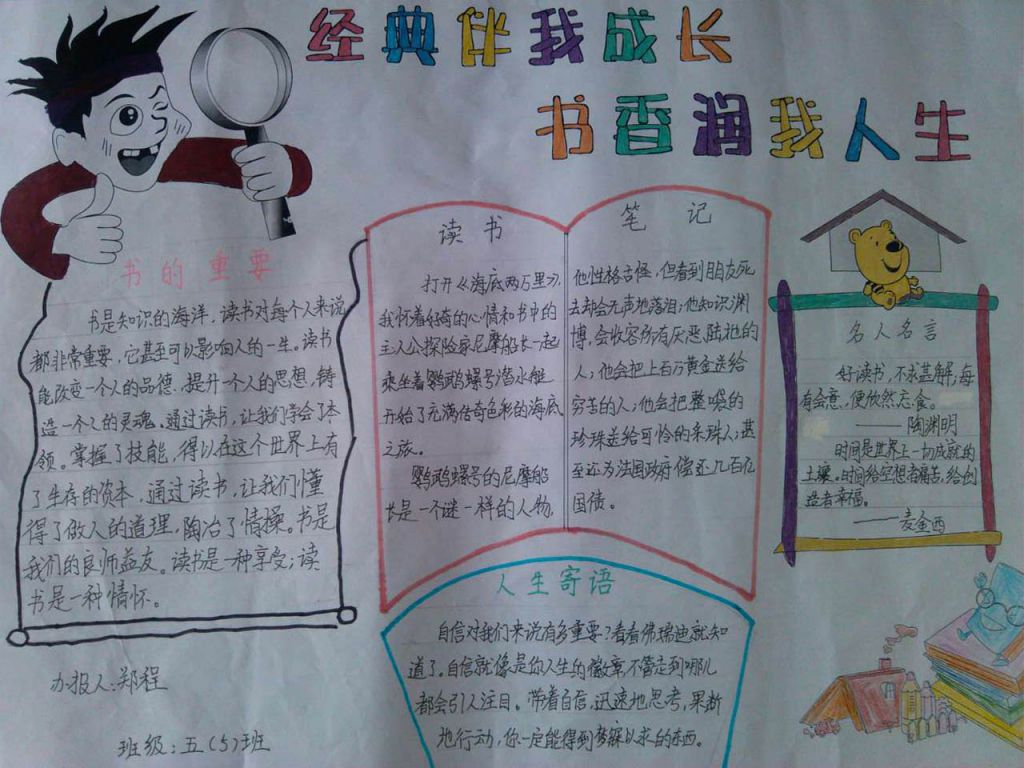 经典伴我成长
书香润我人生
书的重要
书是知识的海洋，读书对每个人来说
都非常重要，它甚至可以影响人的一生。读书
能改变一个人的品德，提升一个人的思想，铸
造一个人的灵魂。通过读书，让我们学会了本
领。掌握了技能，得以在这个世界上有
了生存的资本，通过读书，让我们懂
得了做人的道理，陶冶了情操。书是
我们的良师益友。读书是一种享受；读
书是一种情怀。
办报人：郑程
班级：五(5)班
读书
打开《海底两万里》，
我怀着好奇的心情和书中的
主人公探险家尼摩船长一起
乘坐着鹦鹉螺号潜水艇
开始了充满传奇色彩的海底
之旅。
鹦鹉螺号的尼摩船
长是一个谜一样的人物，
笔记
他性格古怪，但看到朋友死
去却会无声地落泪；他知识渊
博，会收容所有厌恶陆地的
人；他会把上百万黄金送给
穷苦的人；他会把整袋的
珍珠送给可怜的采珠人；甚
至还为法国政府偿还几百亿
国债。
名人名言
好读书，不求甚解；每
有会意，便欣然忘食。
——陶渊明
时间是世界上一切成就的
土壤。时间给空想者痛苦，给创
造者幸福。
——麦金西
人生寄语
自信对我们来说有多重要？看看佛瑞迪就知
道了。自信就像是你人生的徽章，不管走到哪儿
都会引人注目。带着自信，迅速地思考，果断
地行动，你一定能得到梦寐以求的东西。